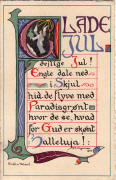 GLADE
JUL
dejlige Jul!
Engle dale ned
i Skjul
hid de flyve med
Paradisgrønt
hvor de se, hvad
for Gud er skønt
Halleluja!